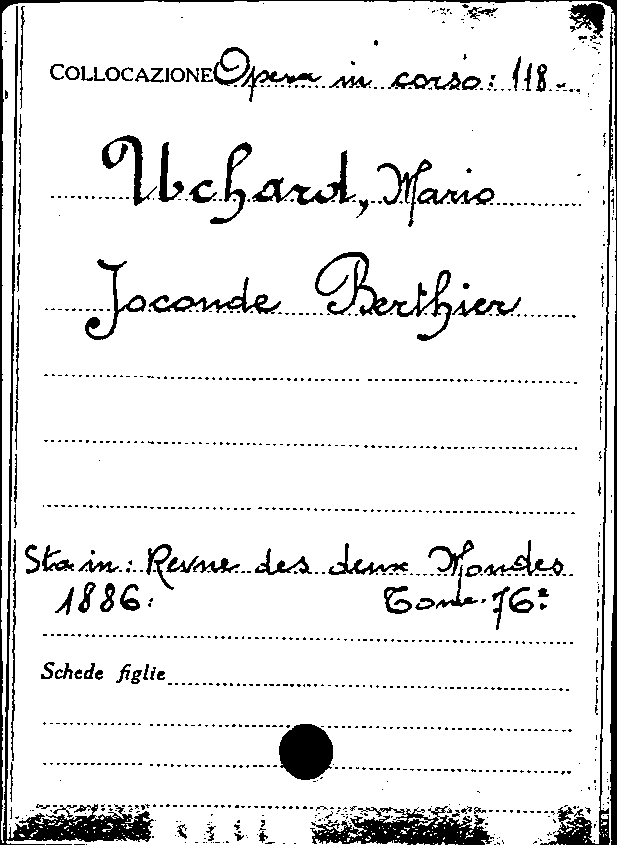 COLLOCAZIONE Opera in corso: 118-
Uchard, Mario
Joconde Berthier
Sta in: Revue des deux Mondes
1886. Tome. 76º.
Schede figlie